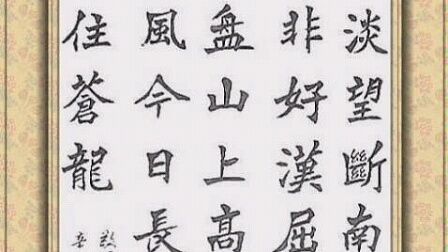 淡望斷南
非好漢屈
盘山上高
風今日長
住蒼龍